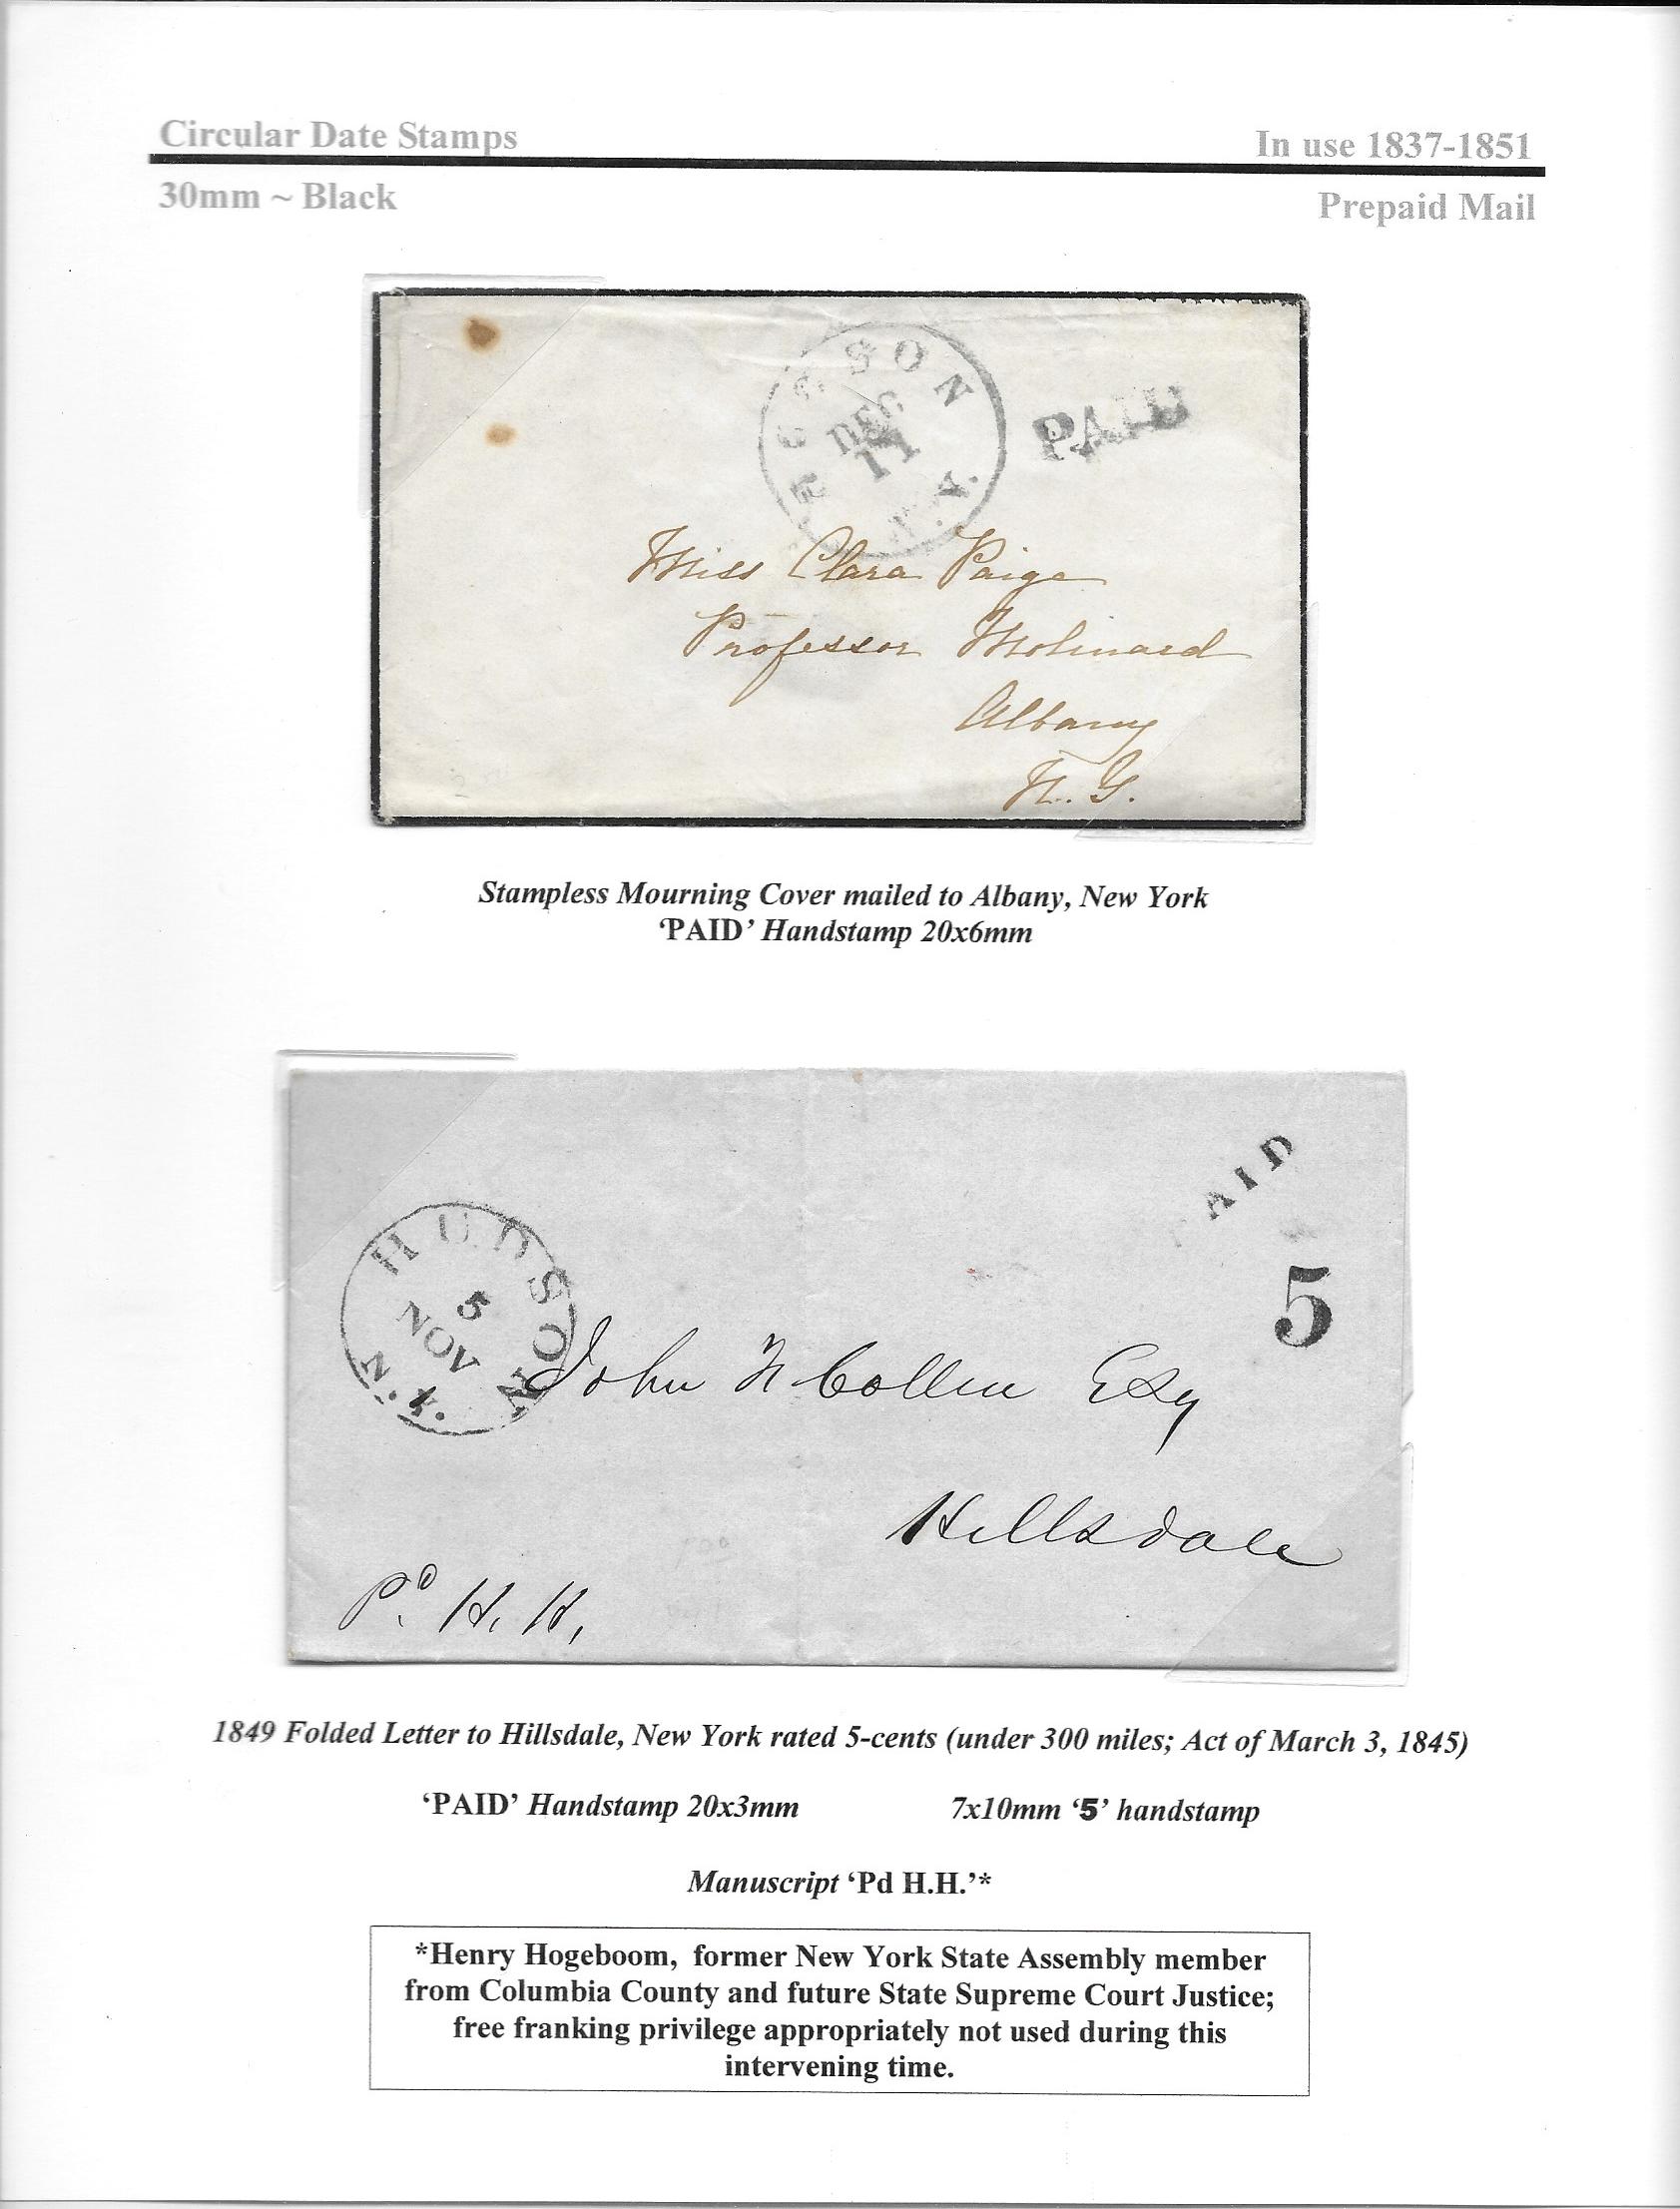 Circular Date Stamps
In use 1837-1851
30mm ~ Black
Prepaid Mail
HUDSON
DEC
11
N.Y.
PAID
Miss Clara Paige
Professor Molinard
Albany
N. Y.
Stampless Mourning Cover mailed to Albany, New York
‘PAID’ Handstamp 20x6mm
AID
HUDSON
5
NOV
N.Y.
5
John F Collin Esq
Hillsdale
Pd. H. H,
1849 Folded Letter to Hillsdale, New York rated 5-cents (under 300 miles; Act of March 3, 1845)
‘PAID’ Handstamp 20x3mm
7x10mm ‘5’ handstamp
Manuscript ‘Pd H.H.’*
*Henry Hogeboom, former New York State Assembly member
from Columbia County and future State Supreme Court Justice;
free franking privilege appropriately not used during this
intervening time.